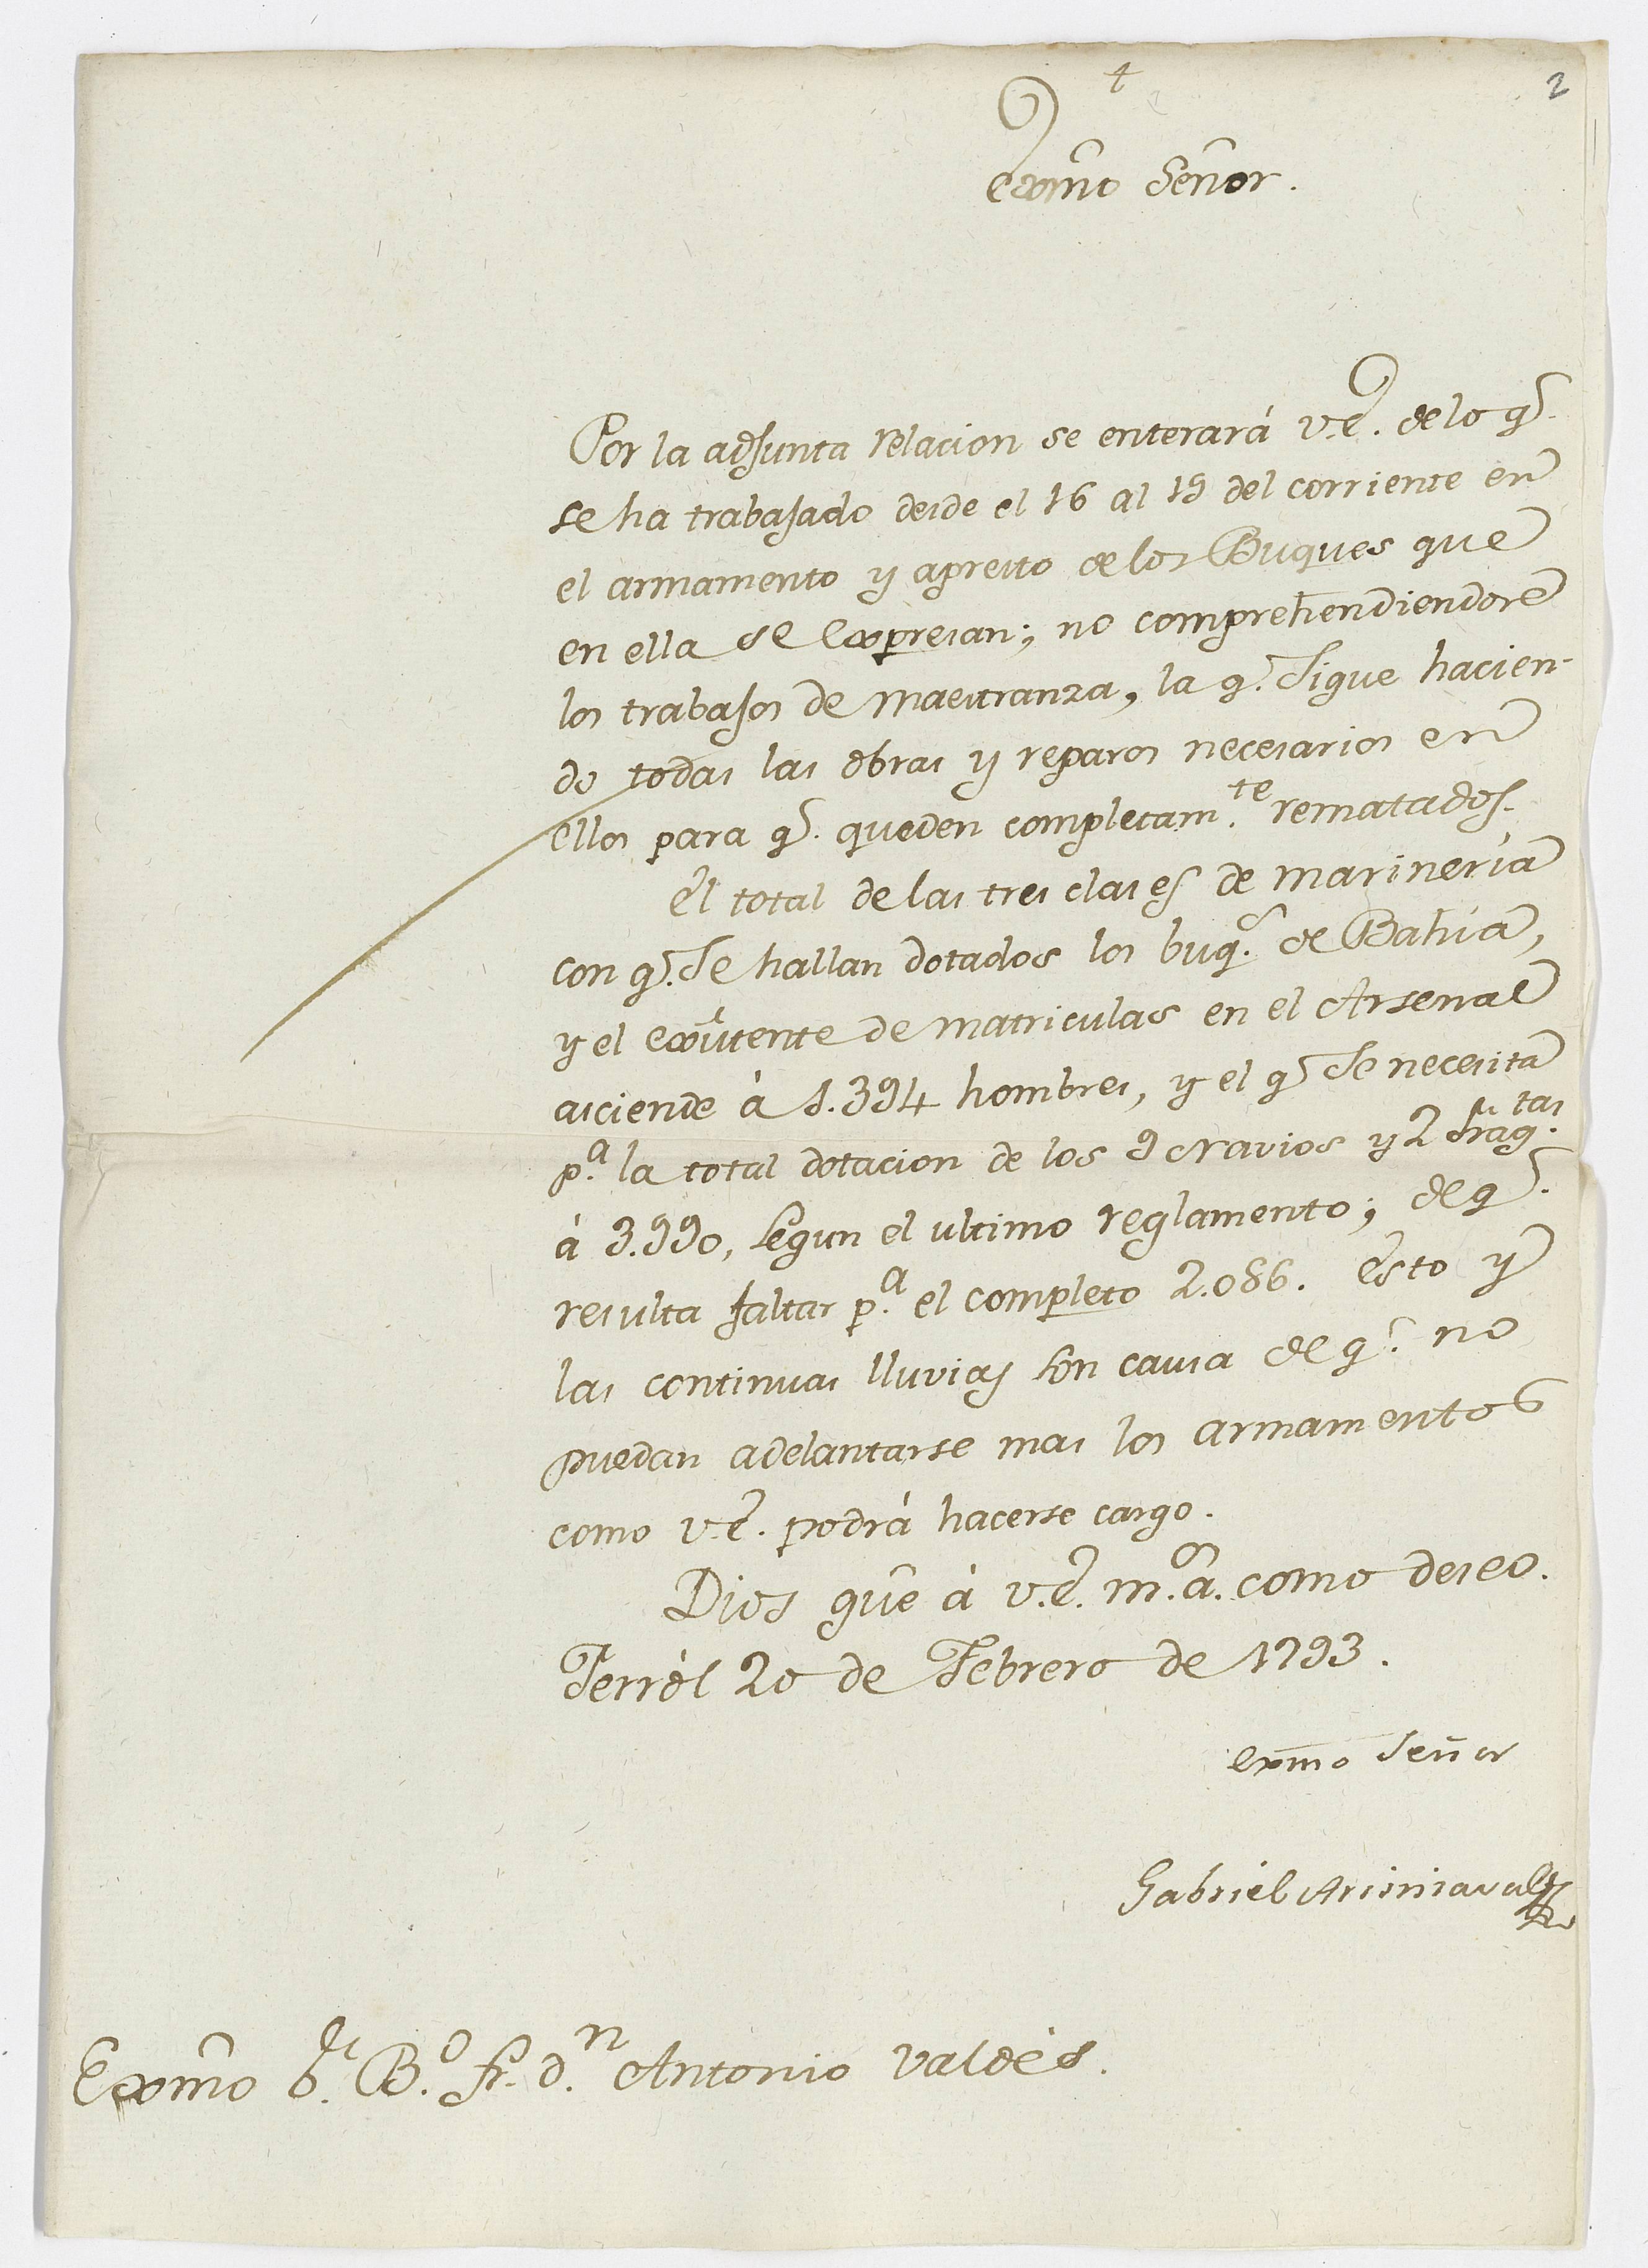 2
†
Exmo Señor.
Por la adjunta relacion se enterará V.E. de lo q.
se ha trabajado desde el 16 al 19 del corriente en
el armamento y apresto de los Buques que
en ella se expresan; no comprehendiendose
los trabajos de maestranza, la q. sigue hacien-
do todas las obras y reparos necesarios en
ellos para q. queden completam.te rematados.
El total de las tres clases de marineria
con q. se hallan dotados los buq.s de Bahia,
y el existente de matriculas en el Arsenal
asciende à 1.394 hombres, y el q. se necesita
p.a la total dotacion de los 9 Navios y 2 frag.tas
à 3.990, segun el ultimo reglamento; de q.
resulta faltar p.a el completo 2.086. Esto y
las continuas lluvias son causa de q. no
puedan adelantarse mas los armamentos
como V.E. podrá hacerse cargo.
Dios gûe à V.E. m.s a.s como deseo.
Ferról 20 de Febrero de 1793.
Exmo Señor
Gabriel Aristizaval
Exmo S.r B.o fr. d.n Antonio Valdés.